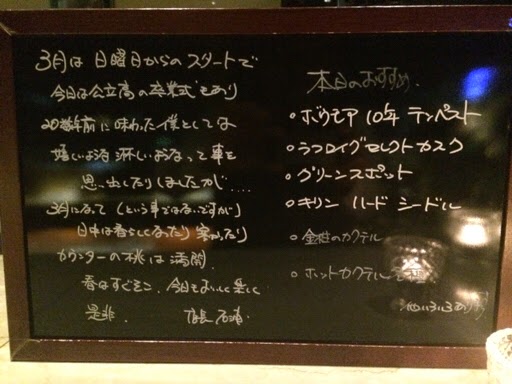 3月は日曜日からのスタートで
今日は公立高の卒業式もあり
20数年前に味わった僕としては
嬉しいような淋しいようなって事を
思い出したりしましたが....
3月になって(という事ではないですが)
日中は暑くなったり寒かったり
カウンターの桃は満開
春はすぐそこ、今日もおいしく楽しく
是非. 店長 石浦
本日のおすすめ.
○ボウモア 10年 テンペスト
○ラフロイグセレクトカスク
○グリーンスポット
○キリン ハード シードル
○金柑のカクテル
○ホットカクテル